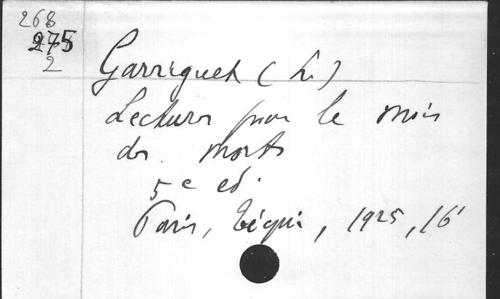 268
275
2
Garriguet (L.)
Lectures pour le mois
des morts
5e ed.
Paris, Téqui, 1925, 16°